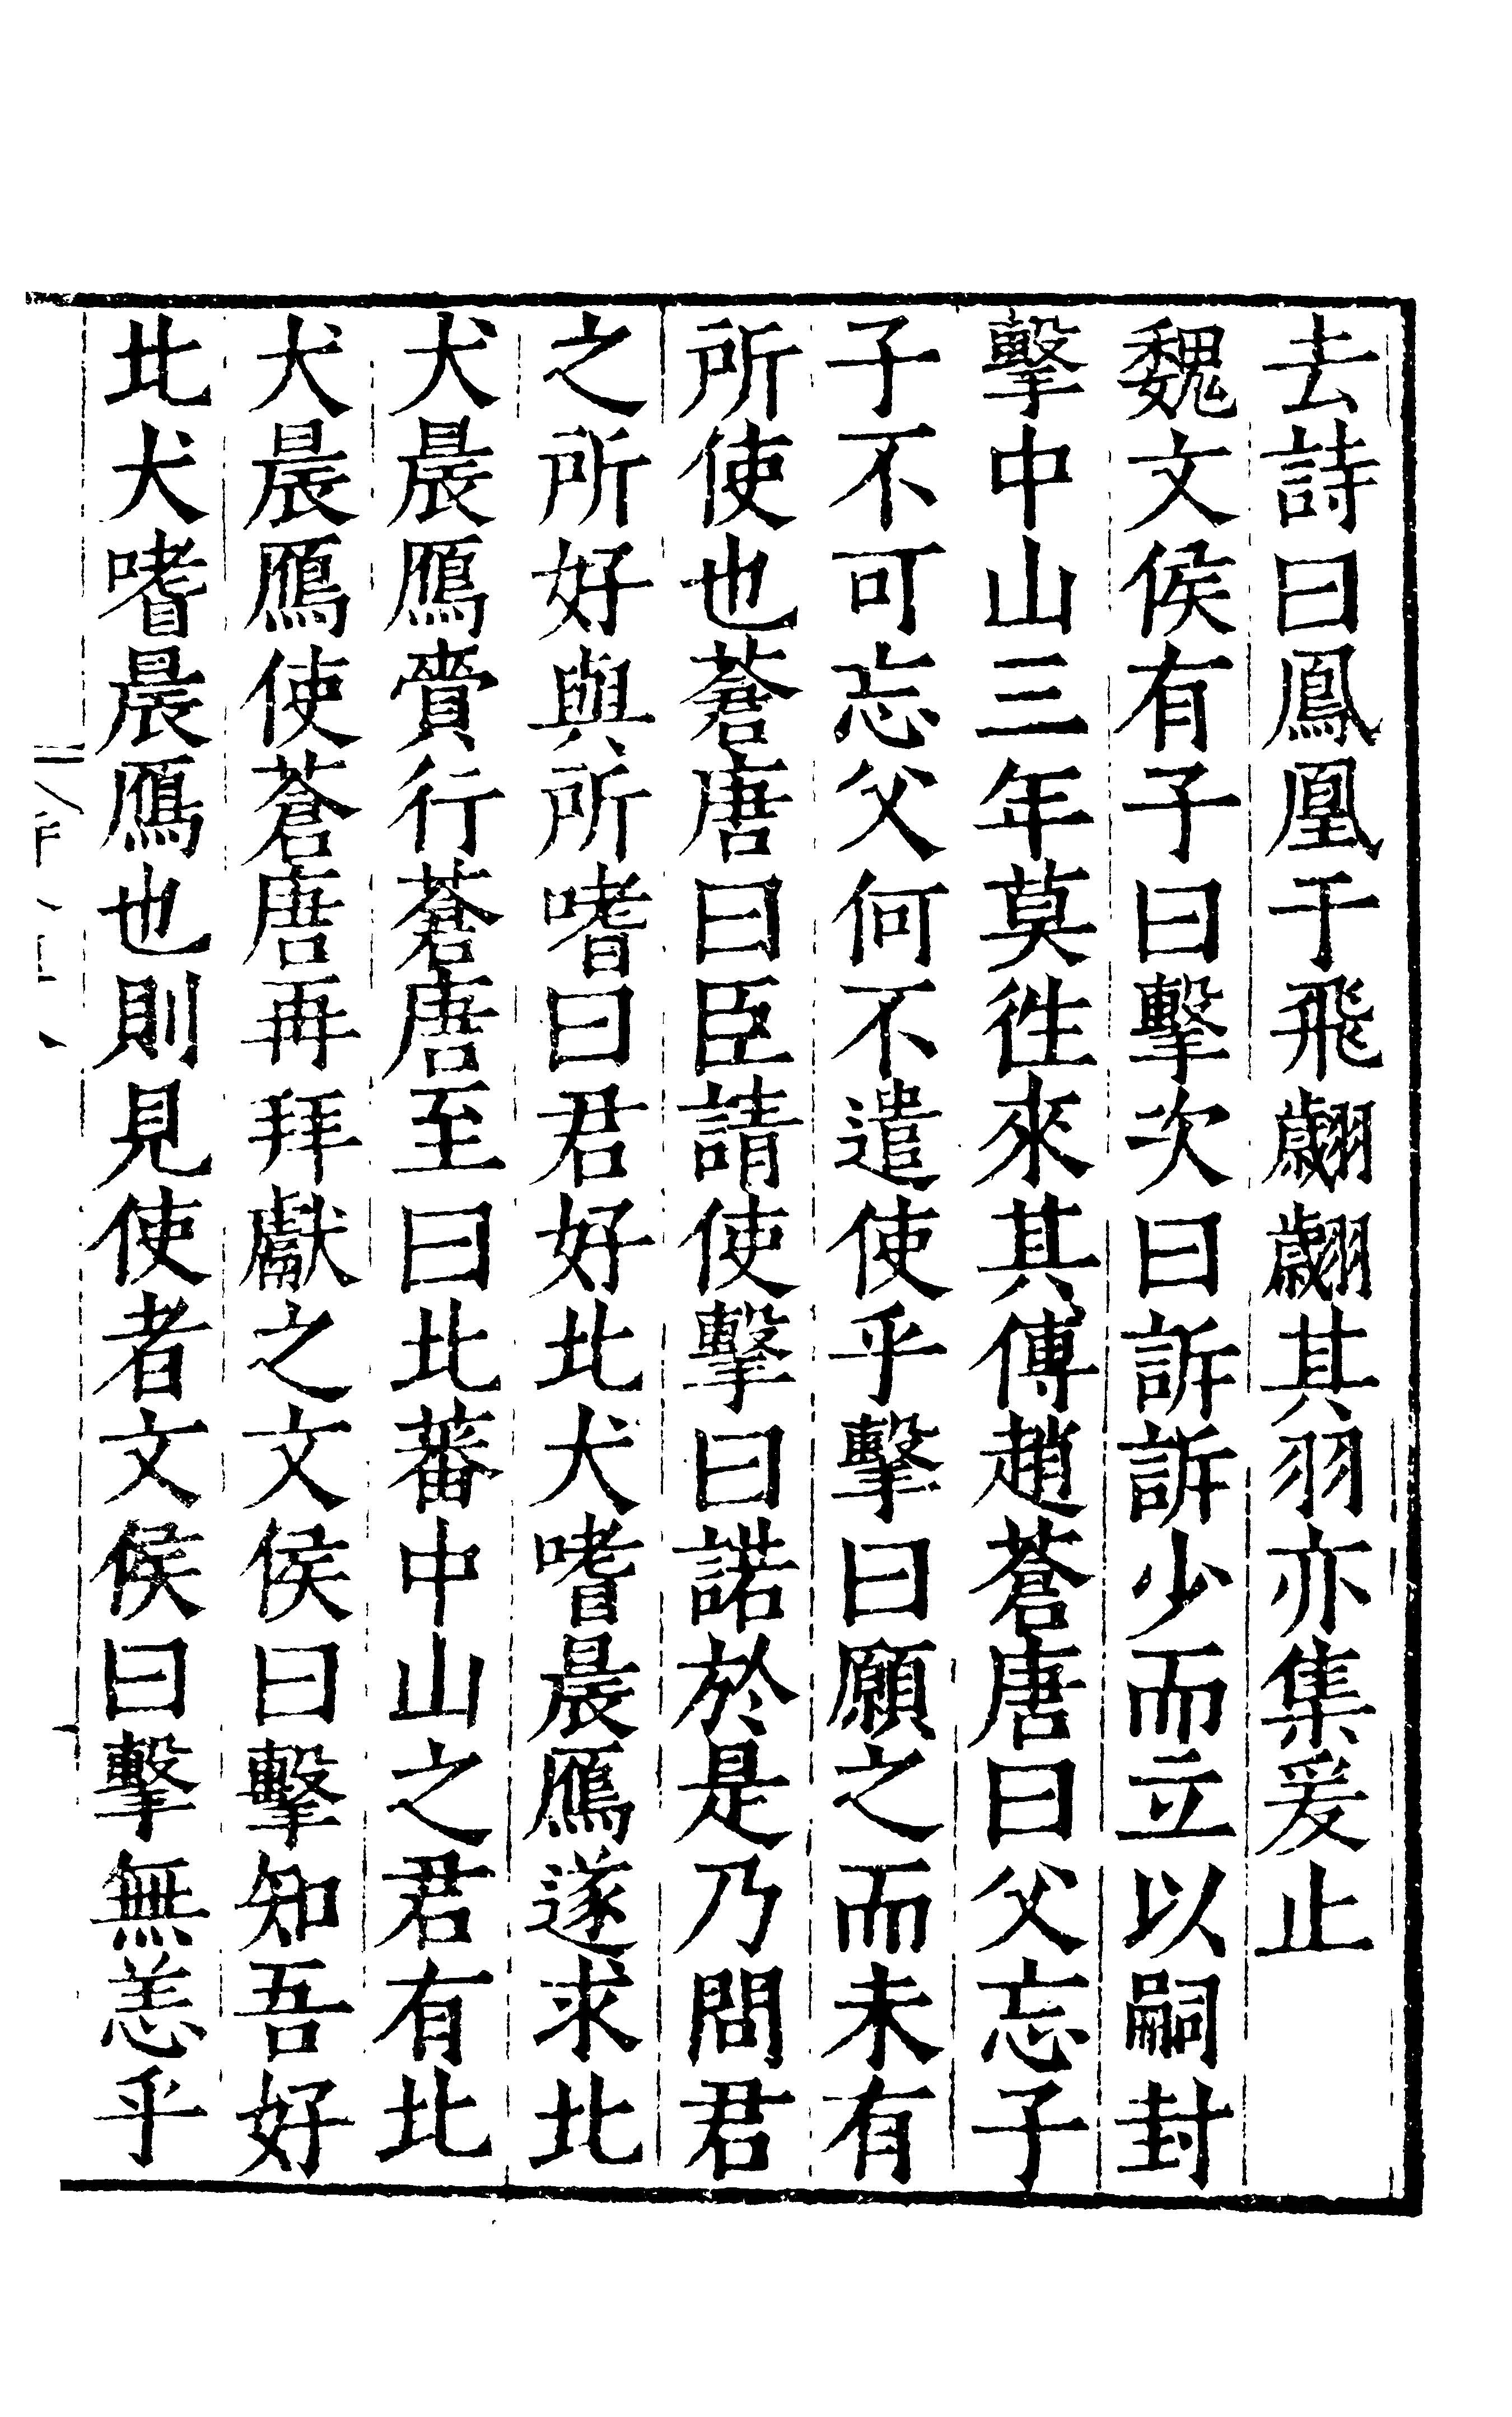 去詩曰鳳凰于飛翽翽其羽亦集爰止
魏文侯有子曰擊次曰訴訴少而立以嗣封
擊中山三年莫徃來其傅趙蒼唐曰父忘子
子不可忘父何不遣使乎擊曰願之而未有
所使也蒼唐曰臣請使擊曰諾於是乃問君
之所好與所嗜曰君好北犬嗜晨鴈遂求北
犬晨鴈賫行蒼唐至曰北蕃中山之君有北
犬晨鴈使蒼唐再拜獻之文侯曰擊知吾好
北犬嗜晨鴈也則見使者文侯曰擊無恙乎